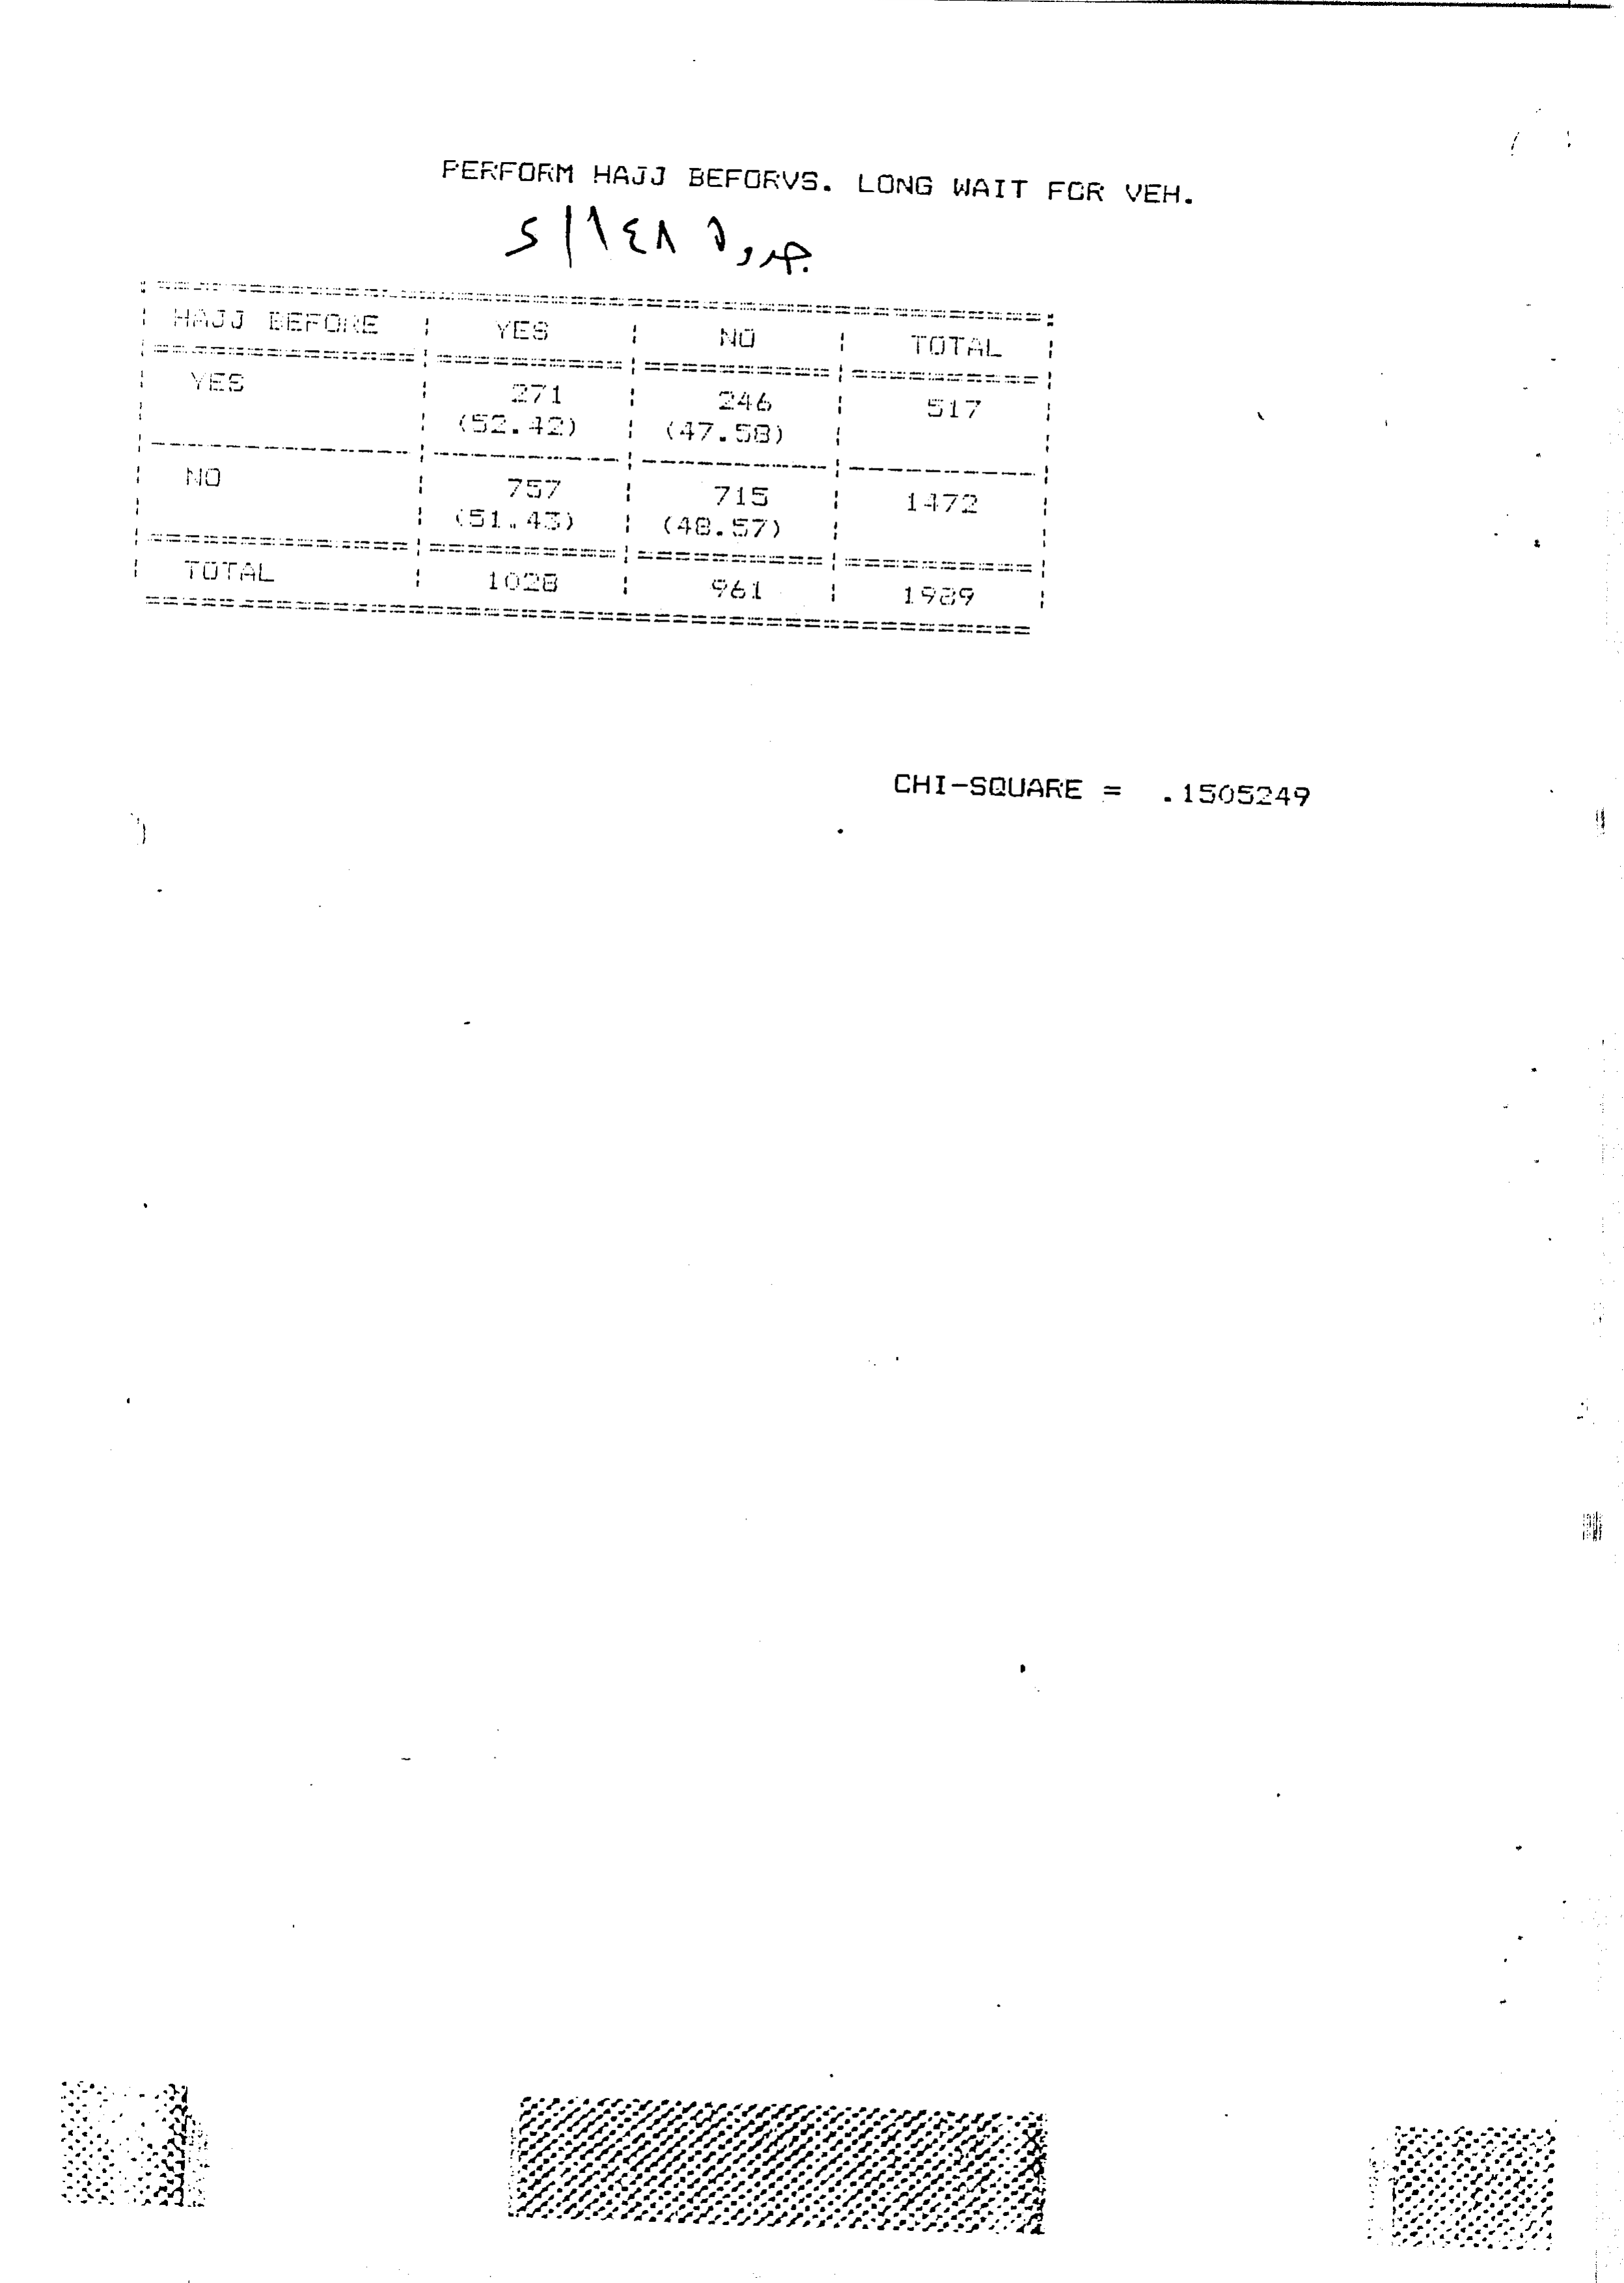 PERFORM HAJJ BEFORVS. LONG WAIT FOR VEH.
جدول ١٤٨/٥
HAJJ BEFORE YES NO TOTAL
YES 271 246 517
(52.42) (47.58)
NO 757 715 1472
(51.43) (48.57)
TOTAL 1028 961 1989
CHI-SQUARE = .1505249